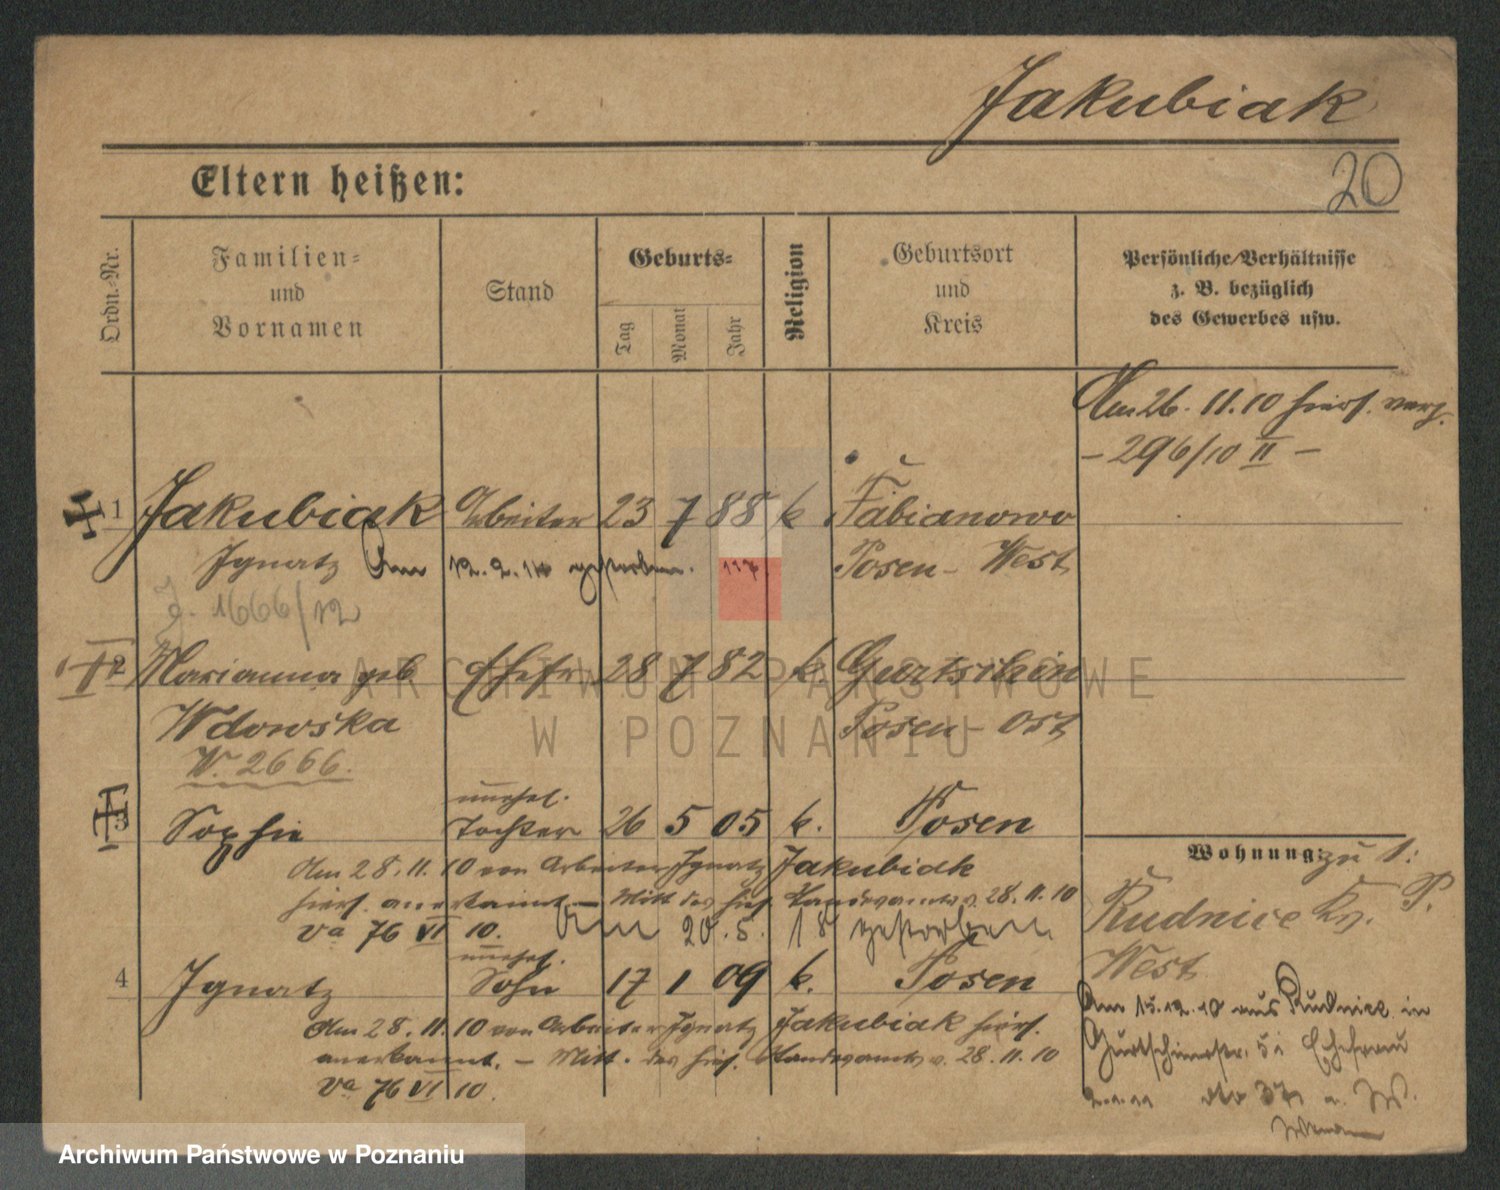 Jakubiak
20
Eltern heißen:
Ordn.-Nr.
Familien-
und
Vornamen
Stand
Geburts-
Tag
Monat
Jahr
Religion
Geburtsort
und
Kreis
Persönliche Verhältnisse
z. B. bezüglich
des Gewerbes usw.
Am 26. 11. 10 hiers. verz.
- 296/10 II -
1 Jakubiak Arbeiter 23 7 88 k Fabianowo
Ignatz Am 12. 2. gestorben. Posen - West
J. 1666/12
2 Marianna geb Ehefr. 28 7 82 k Gurtschin
Wdowska Posen - Ost
W. 2666.
unehel.
3 Sophie Tochter 26 5 05 k. Posen
Am 28. 11. 10 von Arbeiter Ignatz Jakubiak
hiers. anerkannt. - Mitt. des hies. Standesamts v. 28. 11. 10
Va 76 VI 10. Am 20. 5. 18 gestorben
unehel.
4 Ignatz Sohn 17 1 09 k. Posen
Am 28. 11. 10 von Arbeiter Ignatz Jakubiak hiers.
anerkannt. - Mitt. des hies. Standesamts v. 28. 11. 10
Va 76 VI 10.
Wohnung: zu 1:
Rudnicze Kr. P.
West
Am 15. 12. 10 aus Rudnicz in
Gurtschinerstr. Ehefrau
ARCHIWUM PAŃSTWOWE
W POZNANIU
Archiwum Państwowe w Poznaniu